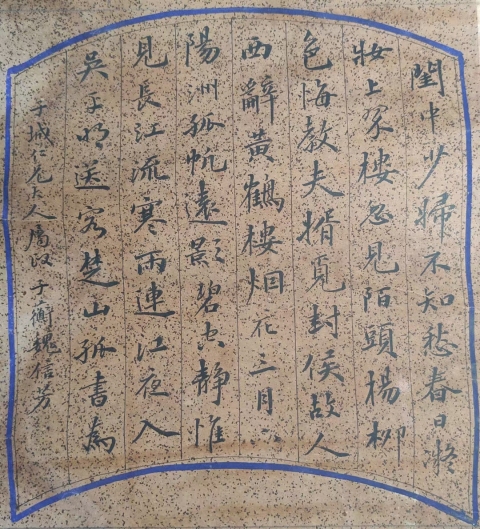 閨中少婦不知愁春日凝
妝上翠樓忽見陌頭楊柳
色悔教夫婿覓封侯故人
西辭黃鶴樓烟花三月下
陽洲孤帆遠影碧空静惟
見長江流寒雨連江夜入
吳平明送客楚山孤書為
城仁兄大人屬政 子蘅魏信芳